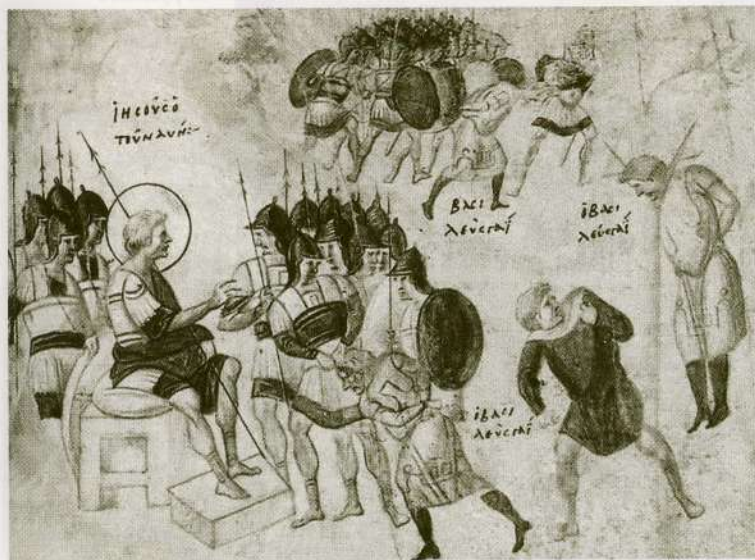 ἰησοῦς ὁ
τοῦ ναυή:
βασι
λεὺς γαΐ
ὁ βασι
λεὺς γαΐ
ὁ βασι
λεὺς γαΐ